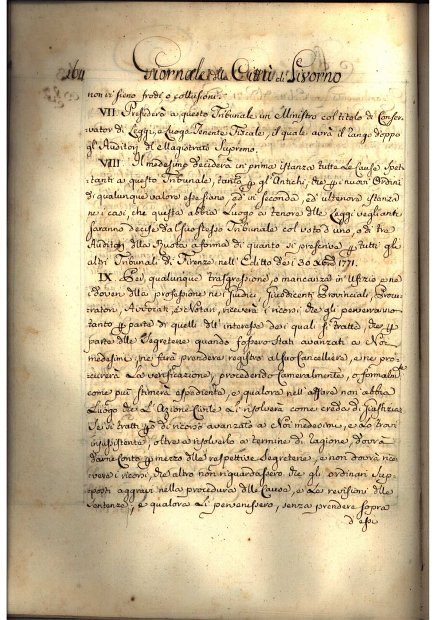 164 Giornale della Città di Livorno
non vi sieno frodi o collusioni.
VII Presiederà a questo Tribunale un Ministro col titolo di Conser-
vator di Leggi, e Luogo Tenente Fiscale, il quale avrà il rango doppo
gl'Auditori del Magistrato Supremo.
VIII Il medesimo deciderà in prima istanza tutte Le Cause Spet-
tanti a questo Tribunale, tanto p gl'Antichi, che p i nuovi Ordini
di qualunque valore esse siano, ed in seconda, ed ulteriore istanza
nei casi, che questa abbia Luogo a tenore delle Leggi veglianti
saranno decise da Suo stesso Tribunale col voto d'uno, o di tre
Auditori della Ruota a forma di quanto si prescrive p tutti gli
altri Tribunali di Firenze nell'Editto de i 30 Xbre 1771.
IX Per qualunque trasgressione, o mancanza in Ufizio, e ne
doveri della professione nei Giudici, Giusdicenti Provinciali, Procu-
ratori, Avvocati, e Notari, riceverà i ricorsi che gli perverranno
tanto p parte di quelli dell'interesse dei quali si tratta, che p
parte delle Segreterie quando fossero stati avanzati a Noi
medesimi, ne farà prendere registro al suo Cancelliere, e ne pro-
curerà La verificazione, procedendo Cameralmente, o formalmte
come più stimerà espediente, e qualora nell'affare non abbia
Luogo che L'Azione Civile Li risolverà come creda di Justizia.
Se si tratti p di ricorso avanzato a Noi medesimi, e Lo trovi
insussistente, oltre a risolverlo a termine di ragione, dovrà
darne conto p mezzo delle respettive Segreterie, e non dovrà rice-
vere i ricorsi, che altro non riguardassero che gli ordinari Sup-
posti aggravi nella procedura delle Cause, e La revisione delle
Sentenze; e qualora Li pervenissero, senza prendere sopra
d'essi